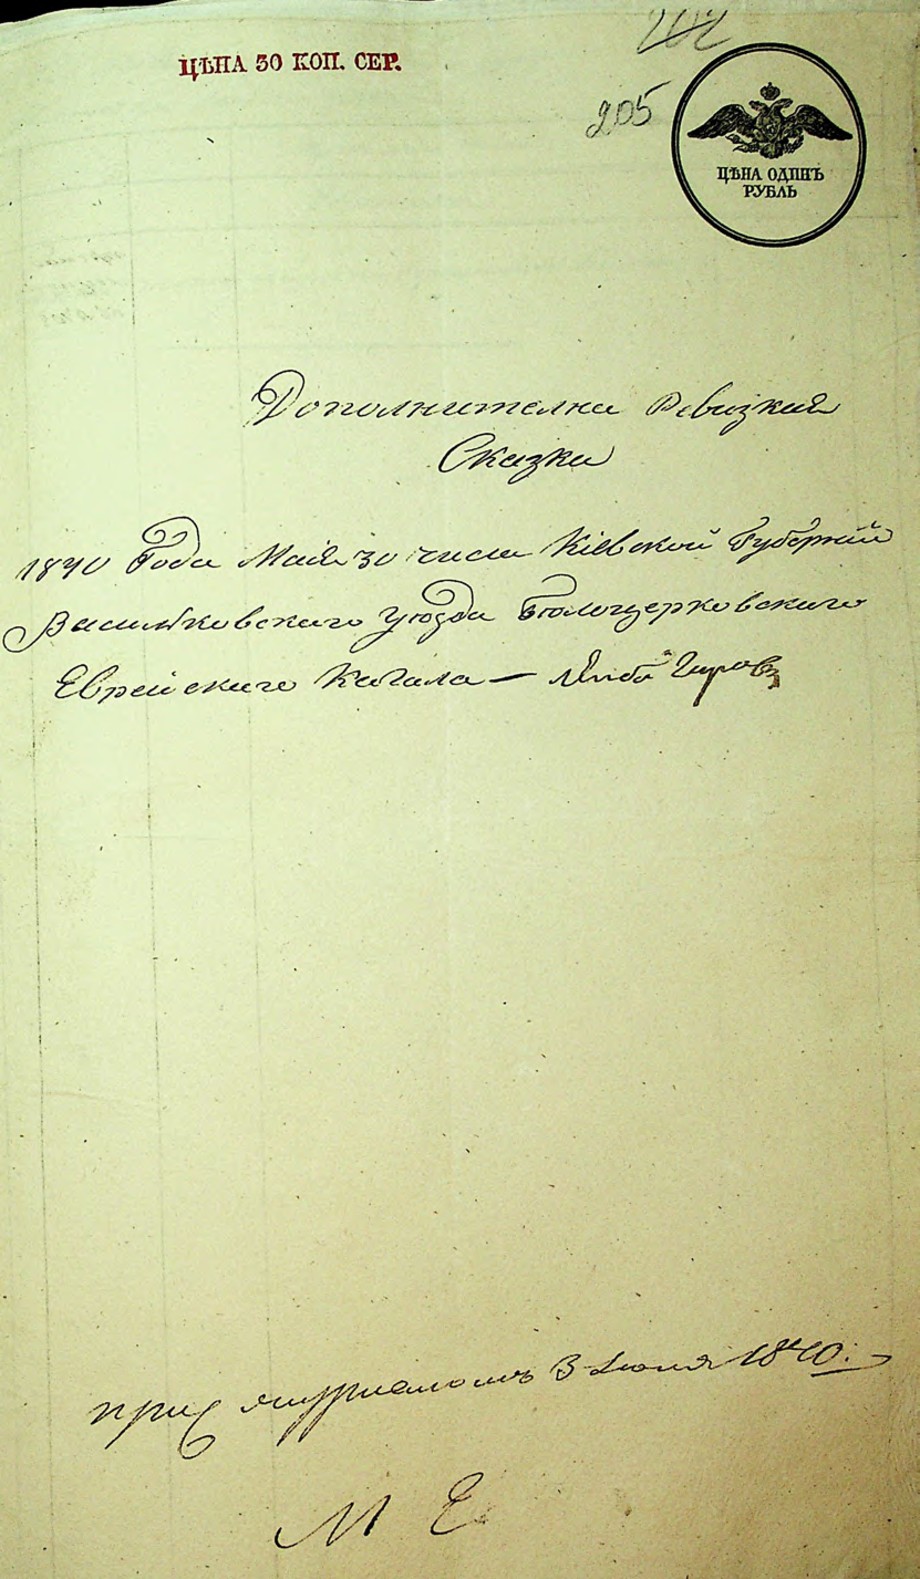 202
ЦѢНА 30 КОП. СЕР.
205
ЦѢНА ОДИНЪ
РУБЛЬ
Дополнителна Ревизкия
Сказки
1840 Года Мая 30 числа Кіевской Губернии
Василковского Уюзда Бюлоцерковского
Еврейскиго Кагала —
при журналом 3 Июня 1840.
М Е